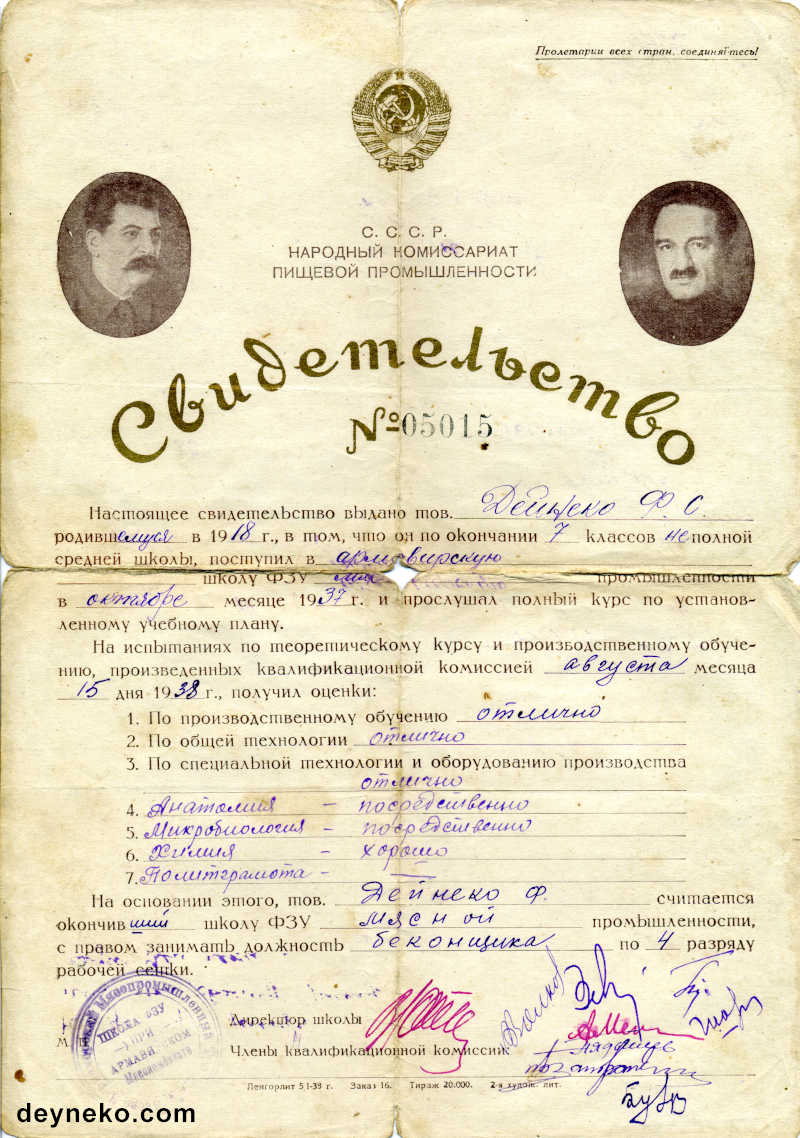 Пролетарии всех стран, соединяйтесь!
С. С. С. Р.
НАРОДНЫЙ КОМИССАРИАТ
ПИЩЕВОЙ ПРОМЫШЛЕННОСТИ
Свидетельство
№ 05015
Настоящее свидетельство выдано тов. Дейнеко Ф. С.
родившемуся в 1918 г., в том, что он по окончании 7 классов неполной
средней школы, поступил в армавирскую
школу ФЗУ промышленности
в октябре месяце 1937 г. и прослушал полный курс по установ-
ленному учебному плану.
На испытаниях по теоретическому курсу и производственному обуче-
нию, произведенных квалификационной комиссией августа месяца
15 дня 1938 г., получил оценки:
1. По производственному обучению отлично
2. По общей технологии отлично
3. По специальной технологии и оборудованию производства
отлично
4. Анатомия - посредственно
5. Микробиология - посредственно
6. Химия - хорошо
7. Политграмота - —
На основании этого, тов. Дейнеко Ф. считается
окончивший школу ФЗУ мясной промышленности,
с правом занимать должность беконщика по 4 разряду
рабочей сетки.
Мясопромышленный
ШКОЛА ФЗУ
ПРИ
Директор школы
Члены квалификационной комиссии:
Ленгорлит 5/1-38 г. Заказ 16. Тираж 20.000. 2-я худож. лит.
deyneko.com